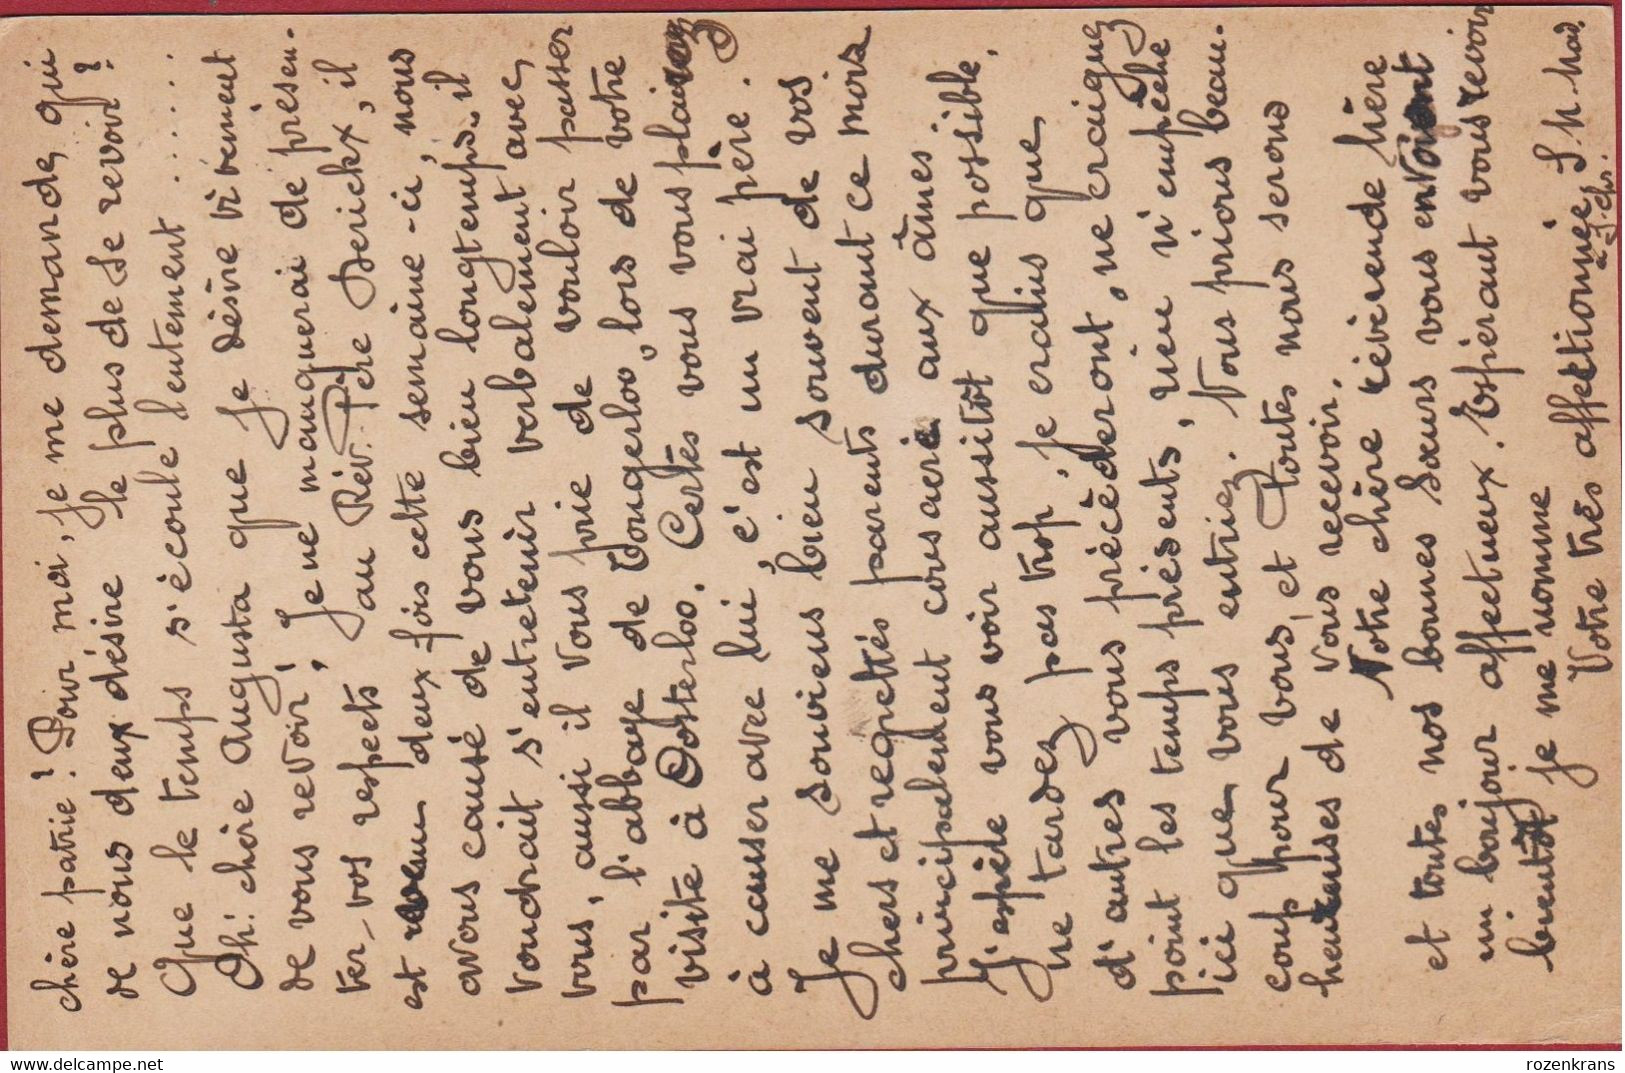 chère patrie! Pour moi, je me demande, qui
de nous deux désire le plus de se revoir?
Que le temps s'écoule lentement......
Oh! chère Augusta que je désire vivement
de vous revoir! Je ne manquerai de présen-
ter vos respects au Rév. Père Derickx, il
est venu deux fois cette semaine-ci, nous
avons causé de vous bien longtemps. il
voudrait s'entretenir verbalement avec
vous, aussi il vous prie de vouloir passer
par l'abbaye de Tongerloo, lors de votre
visite à Oosterloo. Certes vous vous plairez
à causer avec lui, c'est un vrai père.
Je me souviens bien souvent de vos
chers et regrettés parents durant ce mois
principalement consacré aux âmes.
J'espère vous voir aussitôt que possible,
ne tardez pas trop, je crains que
d'autres vous précèderont, ne craignez
point les temps présents, rien n'empêche
ici que vous entriez. Nous prions beau-
coup pour vous, et toutes nous serons
heureuses de vous recevoir.
Notre chère révérende Mère
et toutes nos bonnes Sœurs vous envoient
un bonjour affectueux. Espérant vous revoir
bientôt je me nomme
Votre très affectionnée
rozenkrans